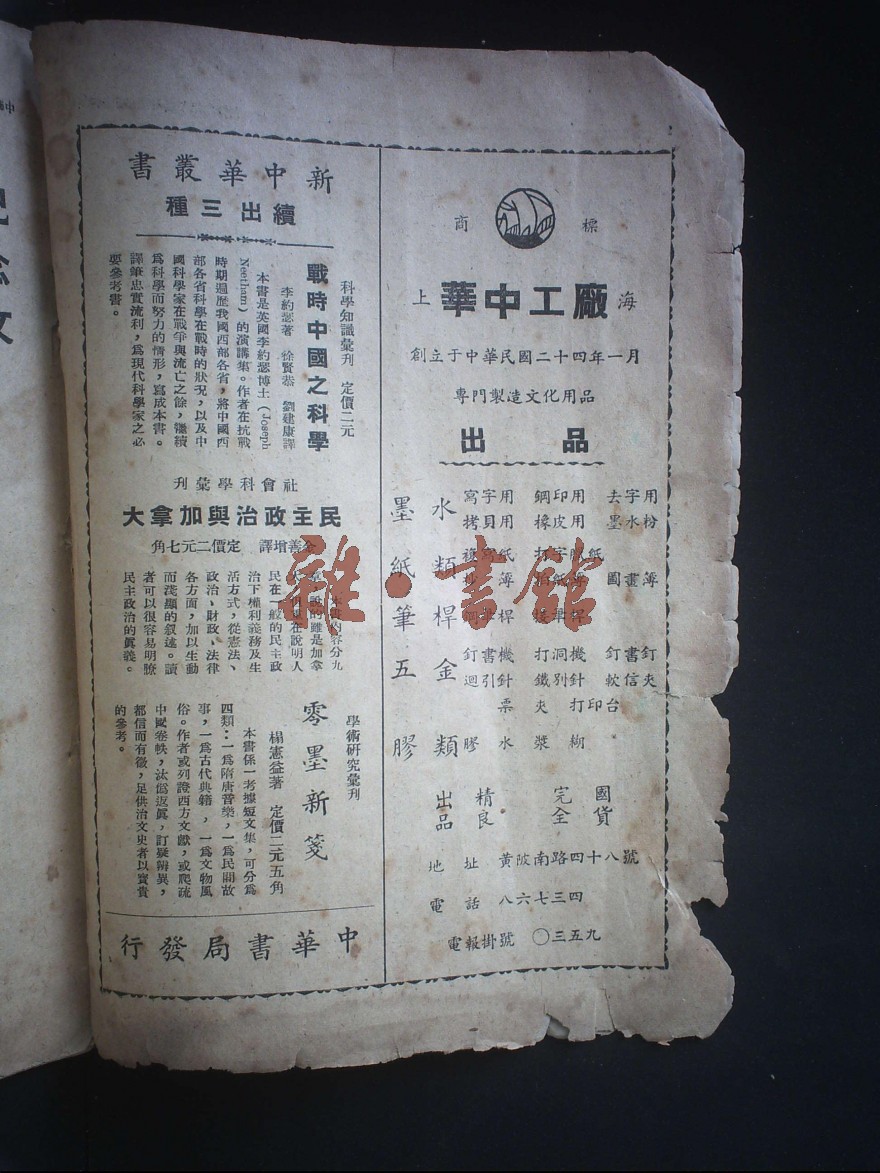 商標
上海
華中工廠
創立于中華民國二十四年一月
專門製造文化用品
出品
墨水
寫字用
鋼印用
去字用
拷貝用
橡皮用
墨水粉
紙類
簿
國畫簿
筆桿
桿
五金類
釘書機
打洞機
釘書釘
迴引針
鐵別針
軟信夾
票夾
打印台
膠類
膠水
漿糊
出品精良
完全國貨
地址 黃陂南路四十八號
電話 八六七三四
電報掛號 〇三五九
新中華叢書
續出三種
科學知識彙刊 定價二元
戰時中國之科學
李約瑟著 徐賢恭 劉建康譯
本書是英國李約瑟博士(Joseph
Needham)的演講集。作者在抗戰
時期遍歷我國西部各省,將中國西
部各省科學在戰時的狀況,以及中
國科學家在戰爭與流亡之餘,繼續
爲科學而努力的情形,寫成本書。
譯筆忠實流利,爲現代科學家之必
要參考書。
社會科學彙刊
民主政治與加拿大
善增譯 定價二元七角
本書內容分九
章,說的雖是加拿
大,但重在說明人
民在一般的民主政
治下權利義務及生
活方式,從憲法、
政治、財政、法律
各方面,加以生動
而淺顯的敘述。讀
者可以很容易明瞭
民主政治的眞義。
學術研究彙刊
零墨新箋
楊憲益著 定價二元五角
本書係一考據短文集,可分爲
四類:一爲隋唐音樂,一爲民間故
事,一爲古代典籍,一爲文物風
俗。作者或列證西方文獻,或爬疏
中國卷帙,汰僞返眞,訂疑辨異,
都信而有徵,足供治文史者以寶貴
的參考。
中華書局發行
雜·書館